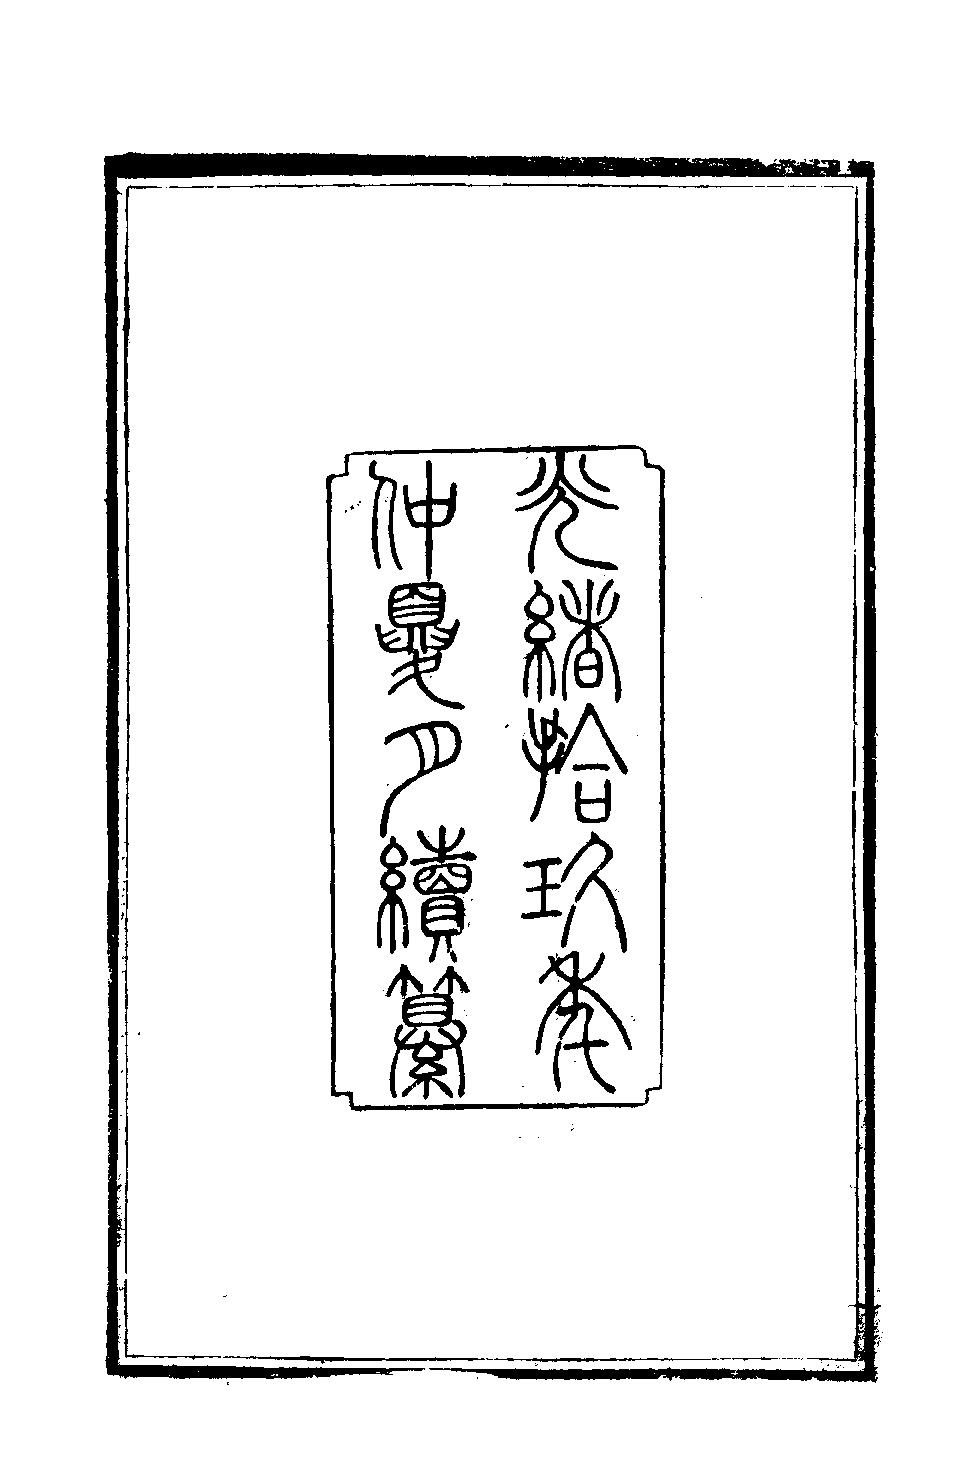 光緒拾玖年
仲夏月續纂